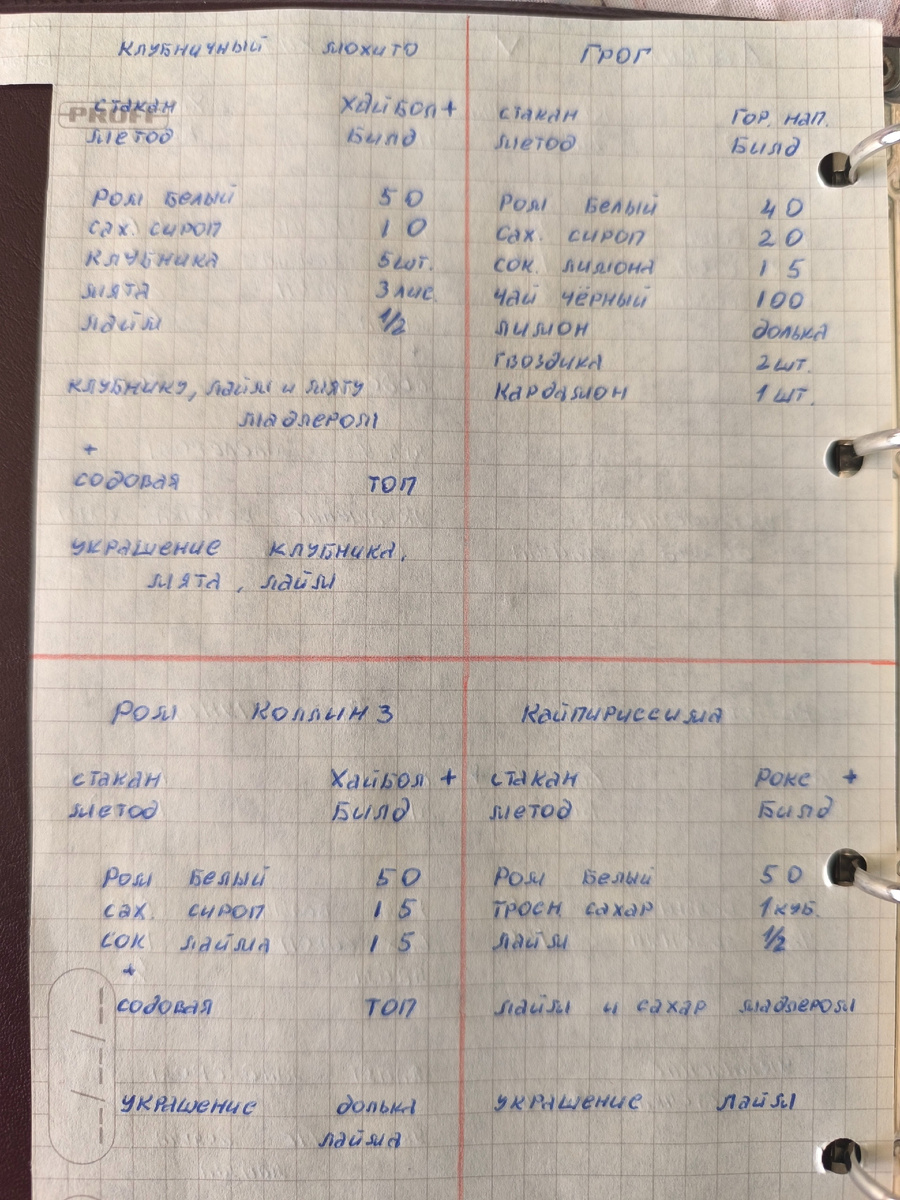 Клубничный мохито
PROFF
стакан Хайбол +
метод Билд
Ром белый 50
сах. сироп 10
клубника 5 шт.
мята 3 лис.
лайм 1/2
клубнику, лайм и мяту
мадлером
+
содовая топ
украшение клубника,
мята, лайм
Грог
стакан Гор. нап.
метод Билд
Ром белый 40
Сах. сироп 20
сок лимона 15
чай чёрный 100
лимон долька
гвоздика 2 шт.
кардамон 1 шт.
Ром Коллинз
стакан Хайбол +
метод Билд
Ром белый 50
сах. сироп 15
сок лайма 15
+
содовая топ
украшение долька
лайма
Кайпириссима
стакан Рокс +
метод Билд
Ром белый 50
тросн. сахар 1 куб.
лайм 1/2
лайм и сахар мадлером
украшение лайм
--/--/--